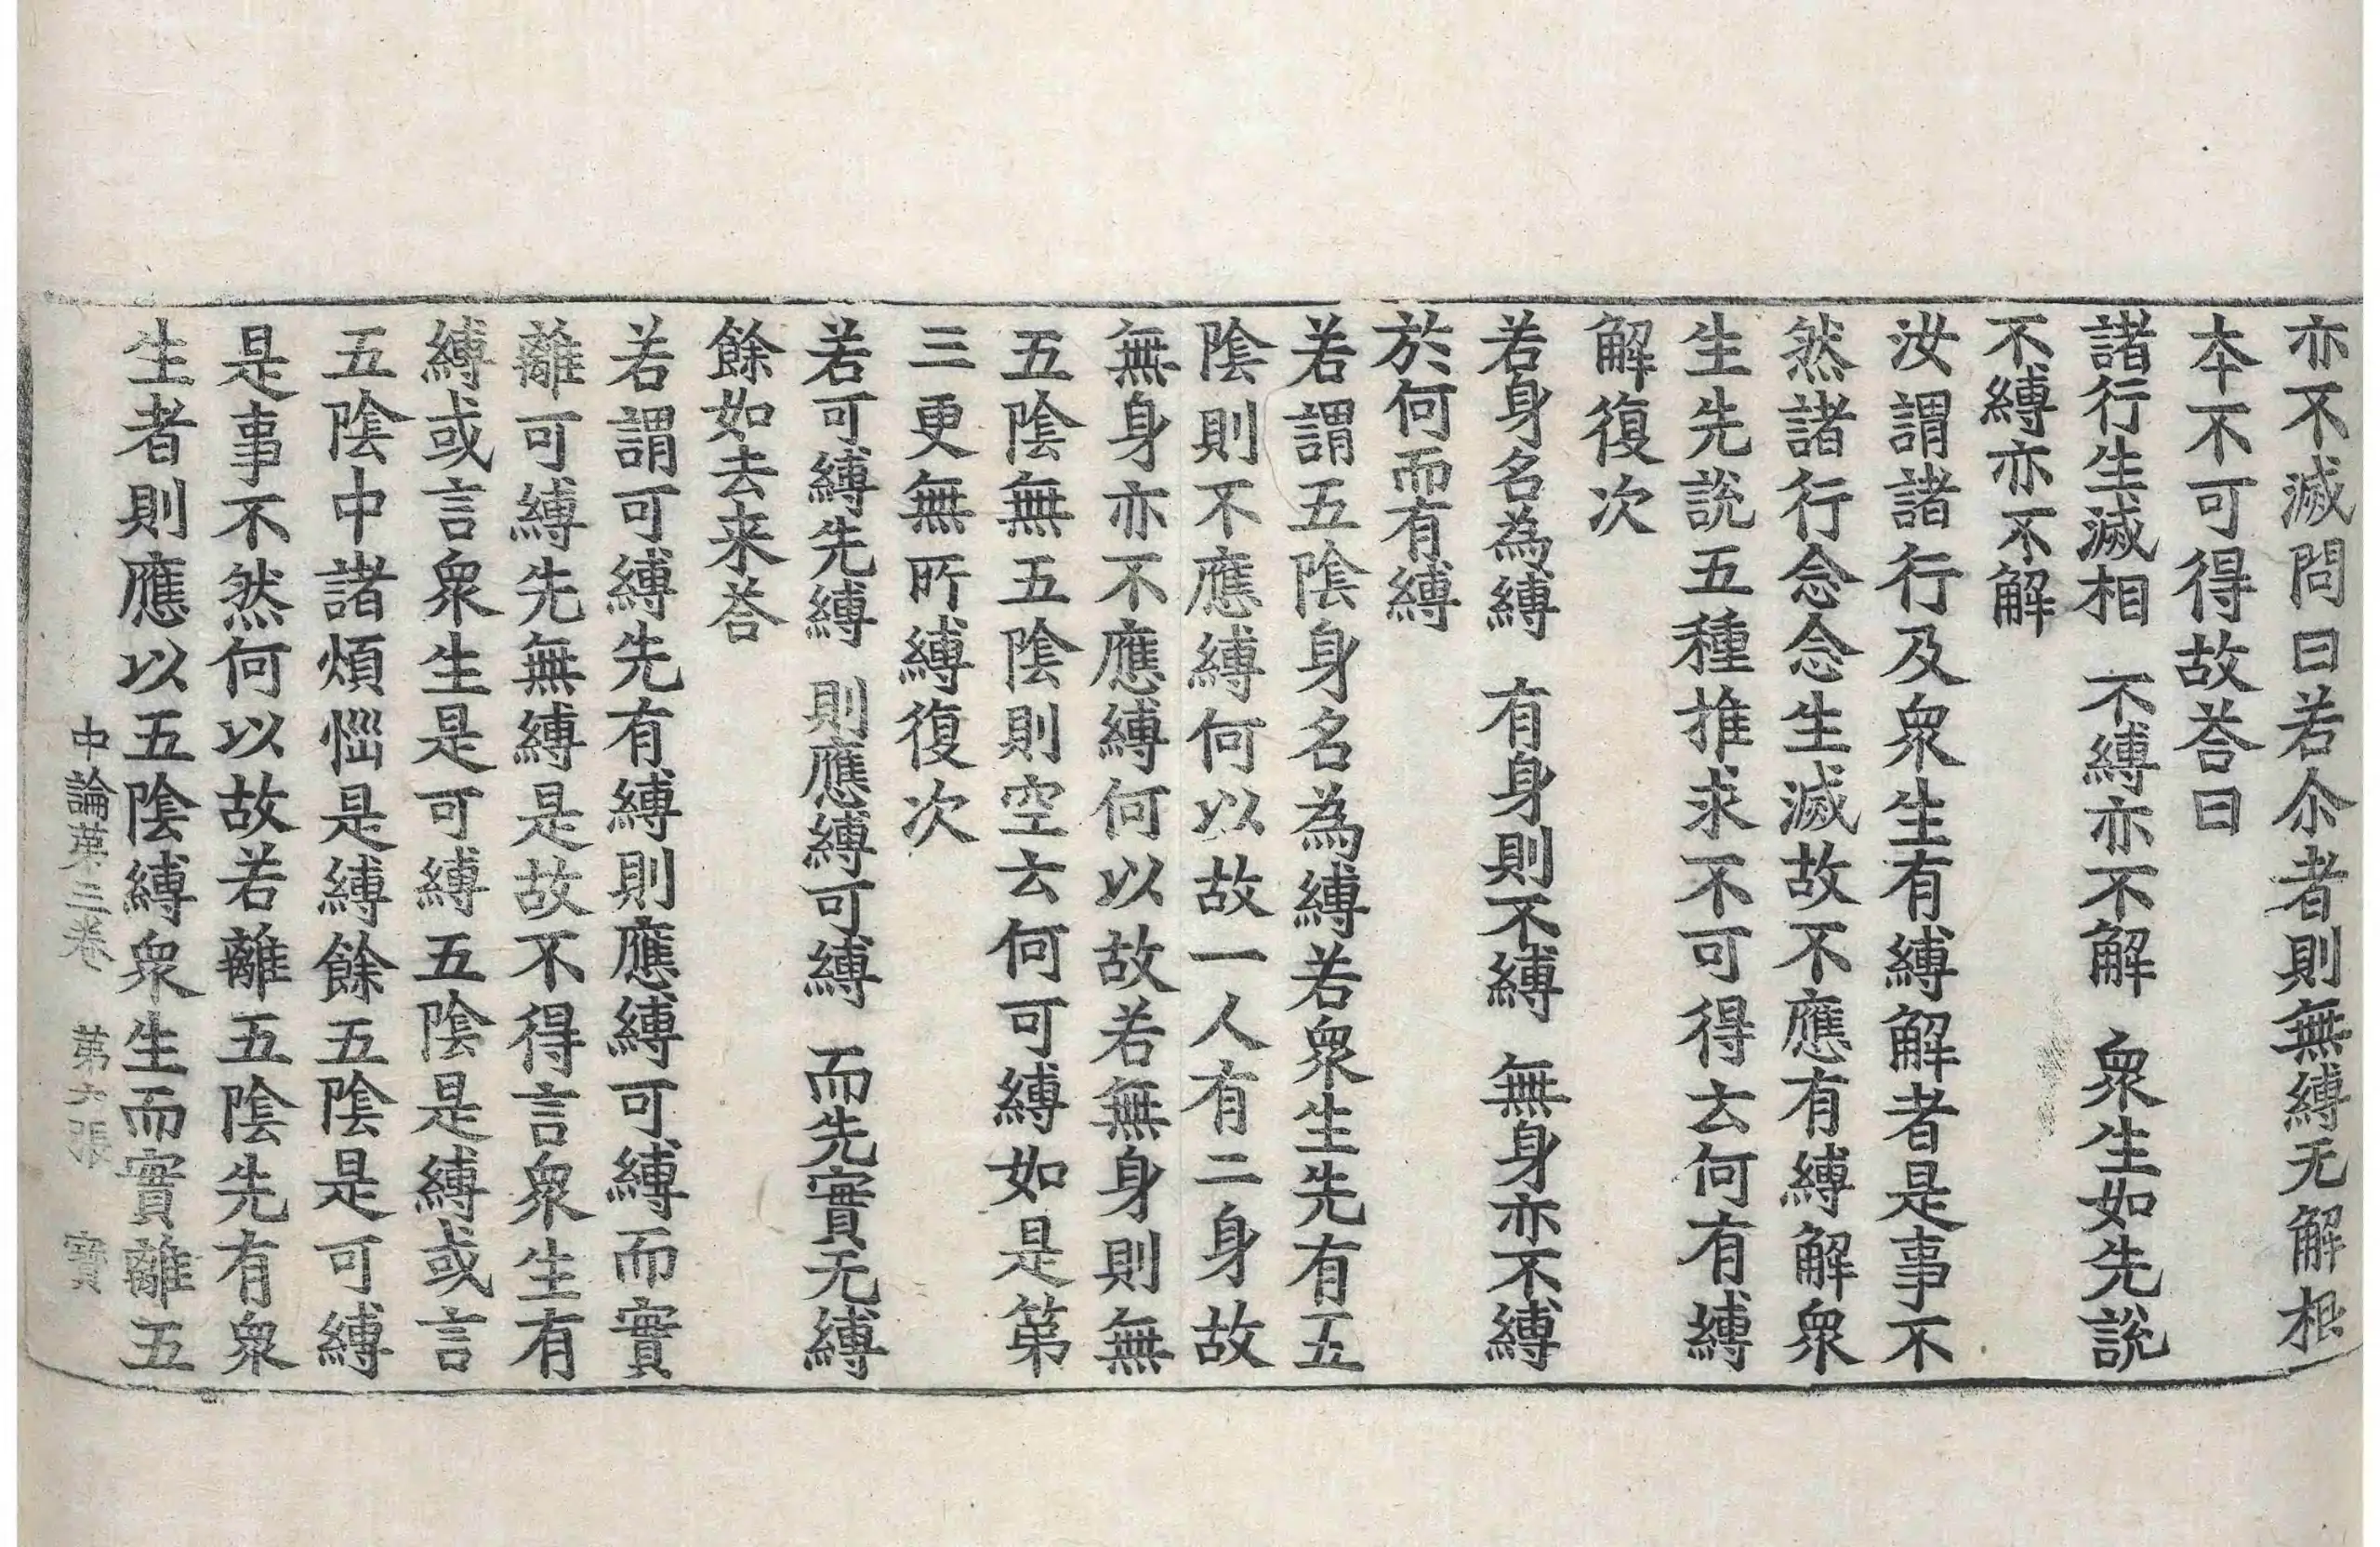 亦不滅問曰若尒者則無縛无解根
本不可得故荅曰
諸行生滅相　不縛亦不解　衆生如先說
不縛亦不解
汝謂諸行及衆生有縛解者是事不
然諸行念念生滅故不應有縛解衆
生先說五種推求不可得云何有縛
解復次
若身名為縛　有身則不縛　無身亦不縛
於何而有縛
若謂五陰身名為縛若衆生先有五
陰則不應縛何以故一人有二身故
無身亦不應縛何以故若無身則無
五陰無五陰則空云何可縛如是第
三更無所縛復次
若可縛先縛　則應縛可縛　而先實无縛
餘如去来荅
若謂可縛先有縛則應縛可縛而實
離可縛先無縛是故不得言衆生有
縛或言衆生是可縛五陰是縛或言
五陰中諸煩惱是縛餘五陰是可縛
是事不然何以故若離五陰先有衆
生者則應以五陰縛衆生而實離五
中論第三卷　第六張　寶